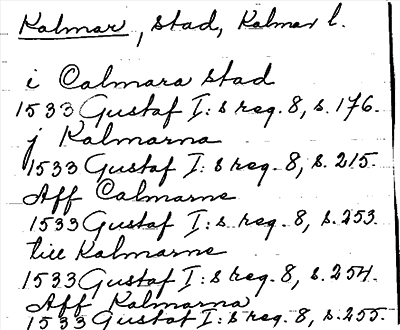 Kalmar, stad, Kalmar l.
i Calmara stad
1533 Gustaf I:s reg. 8, s. 176.
j Kalmarna
1533 Gustaf I:s reg. 8, s. 215.
Aff Calmarne
1533 Gustaf I:s reg. 8, s. 253.
till Kalmarne
1533 Gustaf I:s reg. 8, s. 254.
Aff Kalmarna
1533 Gustaf I:s reg. 8, s. 255.